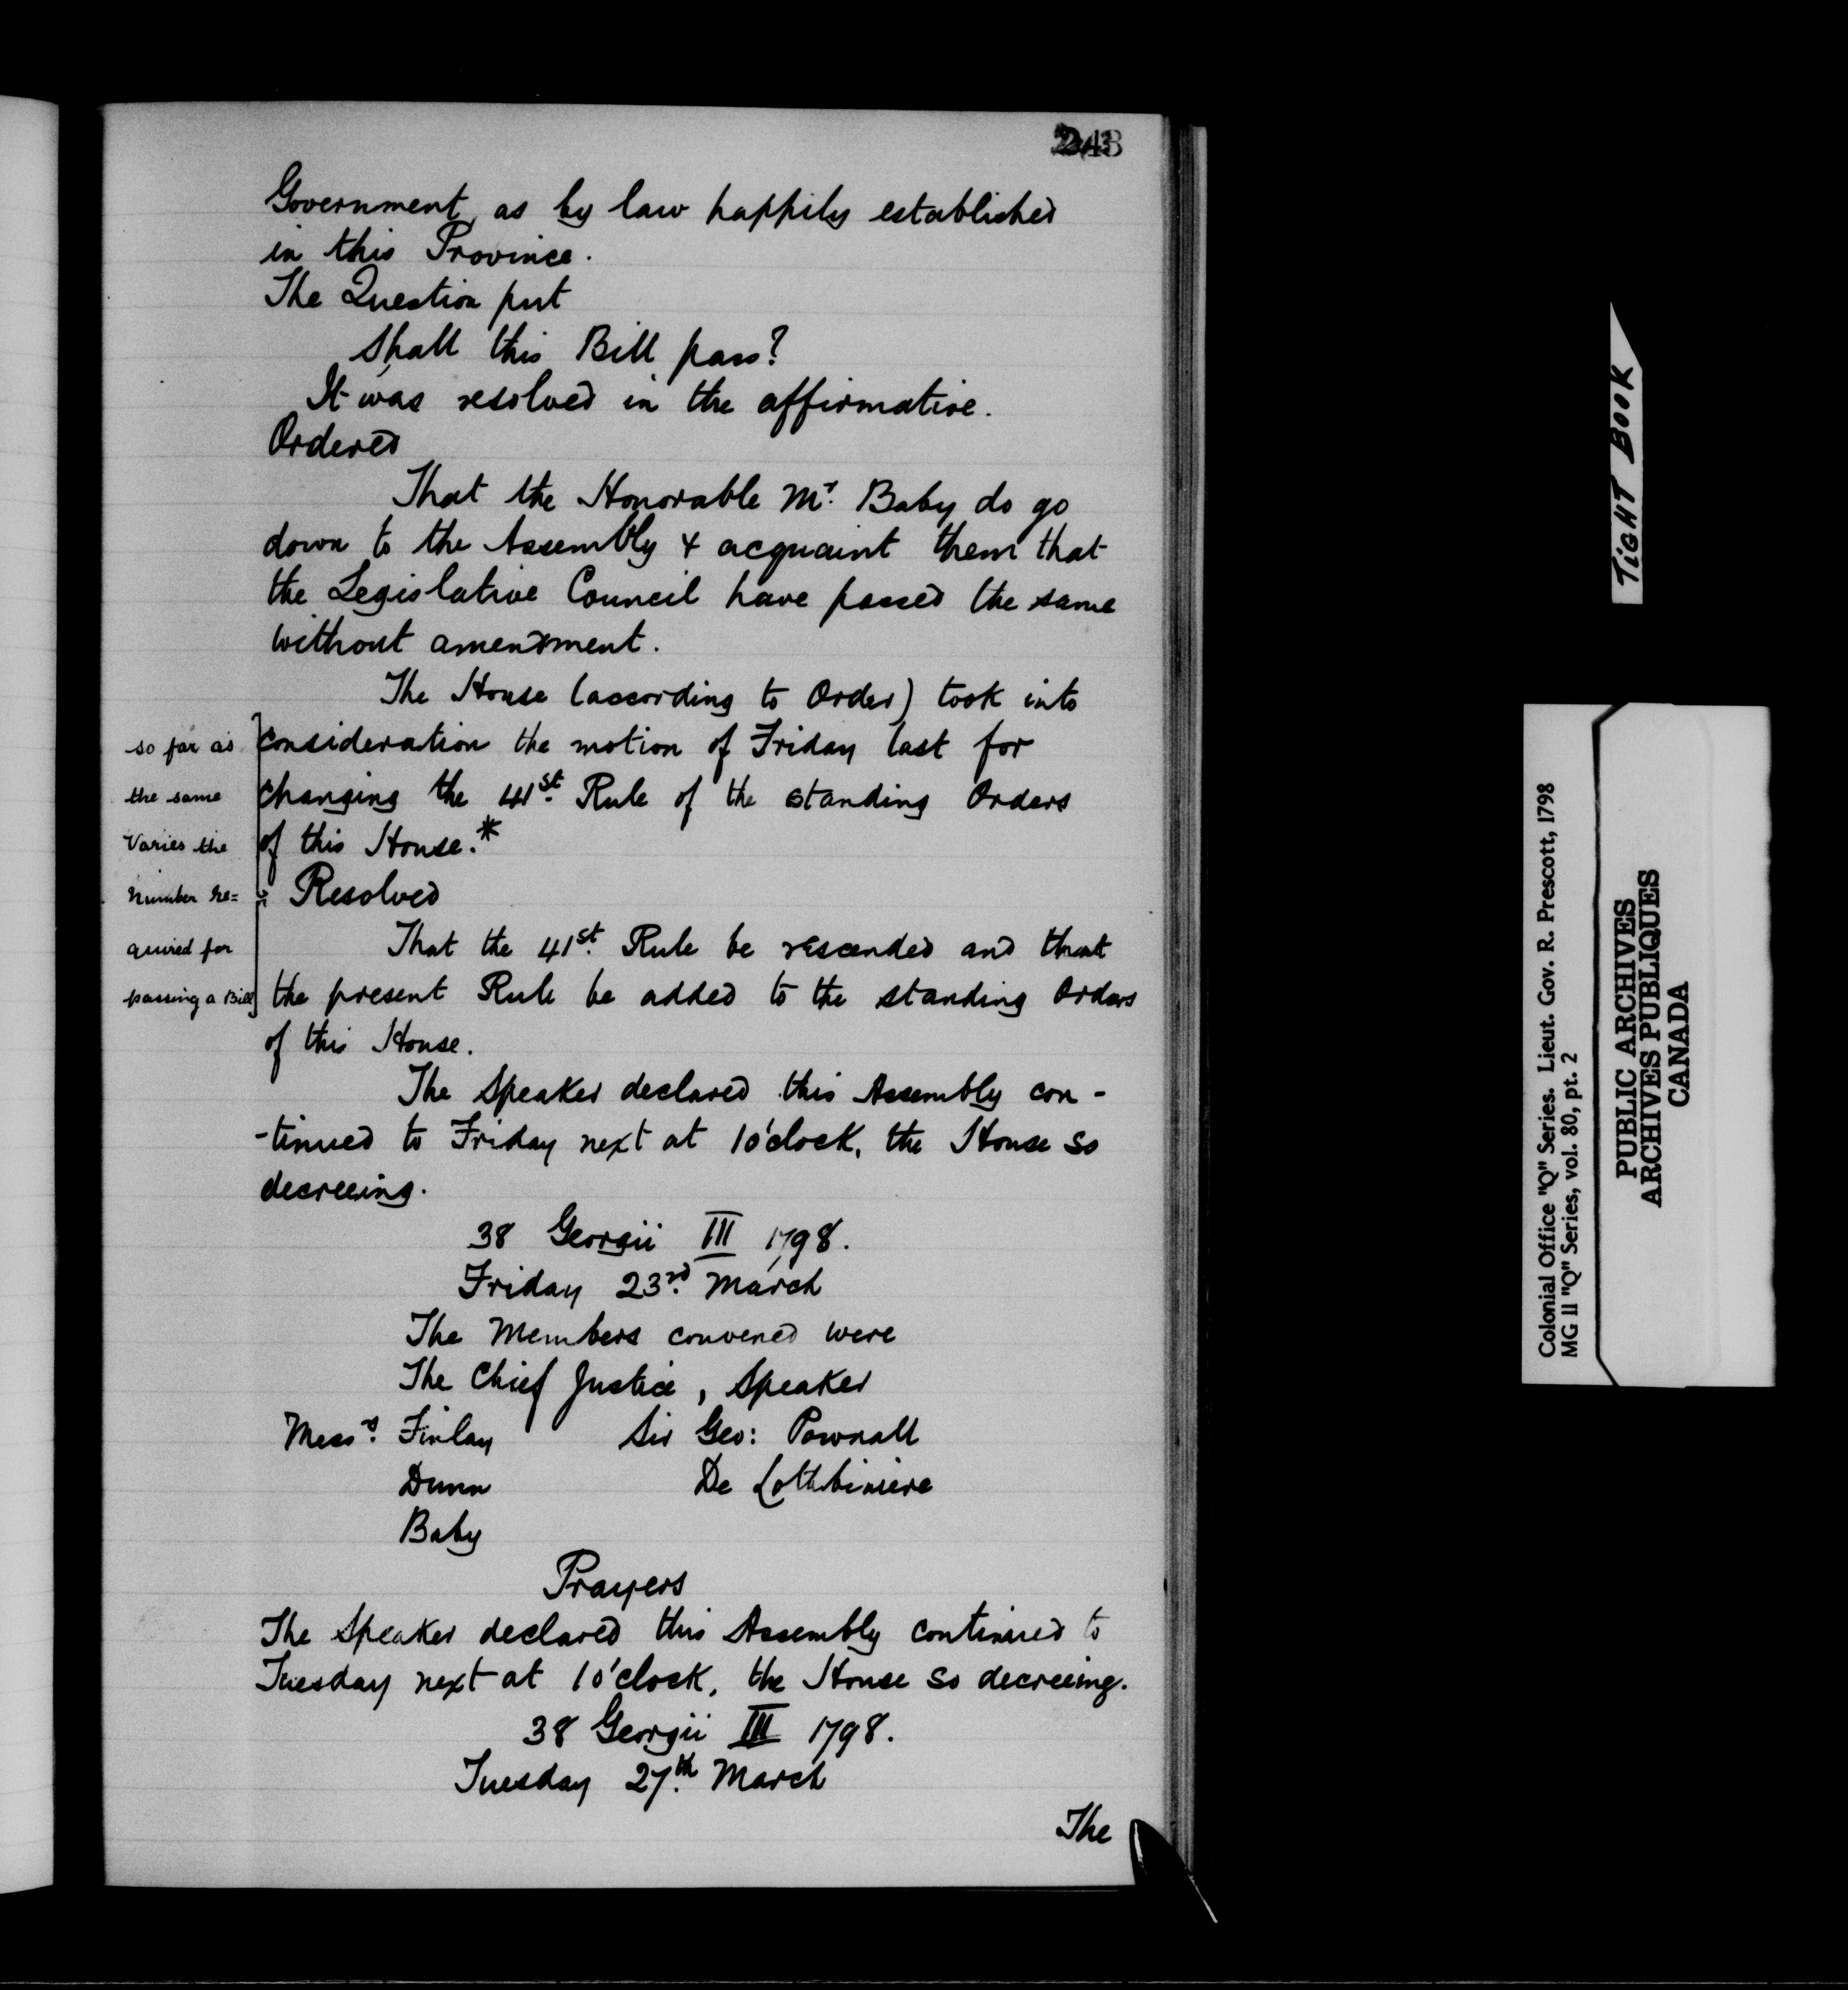 243
Government, as by law happily established
in this Province.
The Question put
Shall this Bill pass?
It was resolved in the affirmative.
Ordered
That the Honorable Mr. Baby do go
down to the Assembly & acquaint them that
the Legislative Council have passed the same
without amendment.
The House (according to Order) took into
consideration the motion of Friday last for
changing the 41st. Rule of the standing Orders
of this House.*
so far as
the same
varies the
number re=
quired for
passing a Bill
* Resolved
That the 41st. Rule be rescended and that
the present Rule be added to the standing Orders
of this House.
The Speaker declared this Assembly con-
-tinued to Friday next at 1 o'clock, the House so
decreeing.
38 Georgii III 1798.
Friday 23rd. March
The Members convened were
The Chief Justice, Speaker
Messrs. Finlay Sir Geo: Pownall
Dunn De Lotbiniere
Baby
Prayers
The Speaker declared this Assembly continued to
Tuesday next at 1 o'clock, the House so decreeing.
38 Georgii III 1798.
Tuesday 27th. March
The
TIGHT BOOK
Colonial Office "Q" Series. Lieut. Gov. R. Prescott, 1798
MG 11 "Q" Series, vol. 80, pt. 2
PUBLIC ARCHIVES
ARCHIVES PUBLIQUES
CANADA